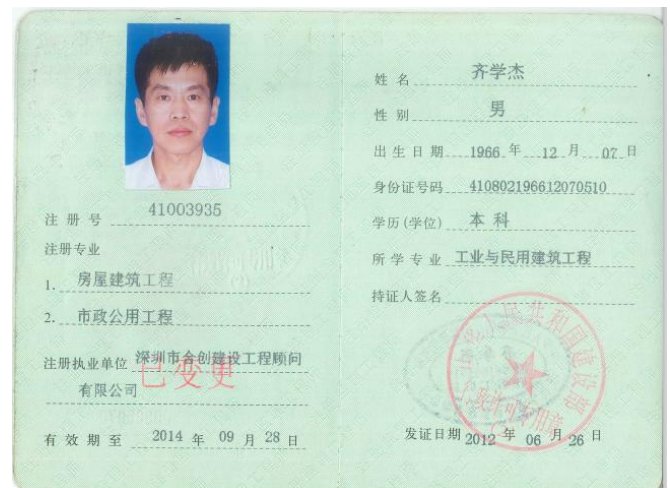 注 册 号 41003935
注册专业
1. 房屋建筑工程
2. 市政公用工程
注册执业单位 深圳市合创建设工程顾问
有限公司
已变更
有 效 期 至 2014 年 09 月 28 日
姓 名 齐学杰
性 别 男
出 生 日 期 1966 年 12 月 07 日
身份证号码 410802196612070510
学历(学位) 本 科
所 学 专 业 工业与民用建筑工程
持证人签名
中华人民共和国建设部
行政许可专用章
发证日期 2012 年 06 月 26 日